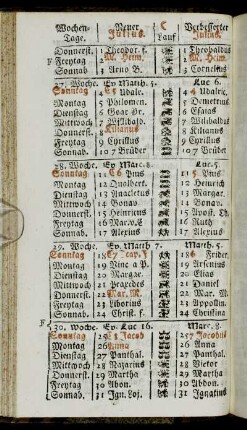 Wochen- Neuer C Verbesserter
Tage. Julius. Lauf Julius.
Donnerst. 1 Theodor. f. 1 Theobaldus
F Freytag 2 M. Heim. 2 M. Heim.
Sonnab 3 Arno B. 3 Cornelius
27. Woche. Ev Matth 5. Luc 6.
Sonntag 4 4 Udalric.
Montag 5 Philomen. 5 Demetrius
Dienstag 6 Goar Dr. 6 Esaias
Mittwoch 7 Willibald. 7 Willibaldus
Donnerst. 8 Kilianus 8 Kilianus
Freytag 9 Cyrillus 9 Cyrillus
Sonnab. 10 7 Brüder 10 7 Brüder
28. Woche. Ev Marc. 8. Luc. 5.
Sonntag 11 Pius 11 Pius
Montag 12 12 Heinrich
Dienstag 13 Anacletus 13 Margar.
Mittwoch 14 Bonav. 14 Bonav.
Donnerst. 15 Heinricus 15 Apost. Th.
Freytag 16 16 Ruth
Sonnab. 17 Alexius 17 Alexius
29. Woche. Ev. Matth 7. Matth. 5.
Sonntag 18 Frider.
Montag 19 19 Arsenius
Dienstag 20 Margar. 20 Elias
Mittwoch 21 Praxedes 21 Daniel
Donnerst. 22 Mar. M. 22 Mar. M.
Freytag 23 Liborius 23 Apollin.
Sonnab. 24 Christ. f. 24 Christina
F 30. Woche. Ev. Luc 16. Marc. 8.
Sonntag 25 Jacob 25 Jacobus
Montag 26 Anna 26 Anna
Dienstag 27 Panthal. 27 Panthal.
Mittwoch 28 Nazarius 28 Victor
Donnerst. 29 Martha 29 Martha
Freytag 30 Abdon. 30 Abdon.
Sonnab. 31 Ign. Loj. 31 Ignatius